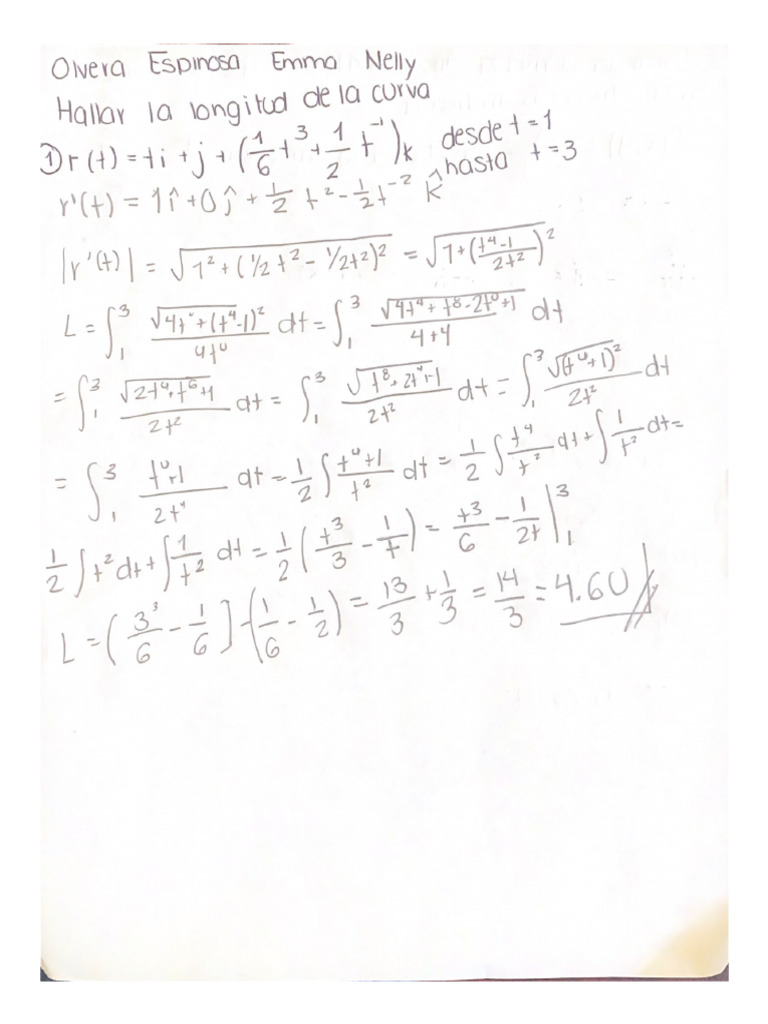 Olvera Espinosa Emma Nelly
Hallar la longitud de la curva
① r(t) = ti + j + (1/6 t³ + 1/2 t⁻¹)k desde t = 1 hasta t = 3
r'(t) = 1î + 0ĵ + 1/2 t² - 1/2 t⁻² k̂
|r'(t)| = √(1² + (1/2 t² - 1/2t²)²) = √(1 + ((t⁴-1)/(2t²))²)
L = ∫₁³ √(4t⁴ + (t⁴-1)²)/(4t⁴) dt = ∫₁³ √(4t⁴ + t⁸ - 2t⁴ + 1)/(4+4) dt
= ∫₁³ √(2t⁴ + t⁶ + 1)/(2t²) dt = ∫₁³ √(t⁸ + 2t⁴ + 1)/(2t²) dt = ∫₁³ √((t⁴+1)²)/(2t²) dt
= ∫₁³ (t⁴+1)/(2t⁴) dt = 1/2 ∫ (t⁴+1)/t² dt = 1/2 ∫ t⁴/t² dt + ∫ 1/t² dt =
1/2 ∫ t² dt + ∫ 1/t² dt = 1/2 (t³/3 - 1/t) = t³/6 - 1/2t |₁³
L = (3³/6 - 1/6] - (1/6 - 1/2) = 13/3 + 1/3 = 14/3 = 4.60